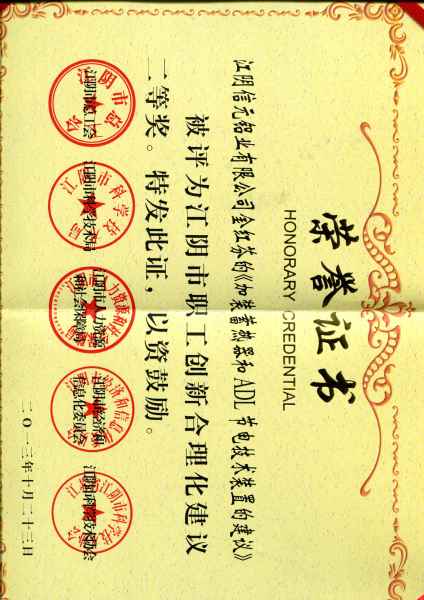 荣誉证书
HONORARY CREDENTIAL
江阴信元铝业有限公司金红芬的《加装蓄热器和ADL节电技术装置的建议》
被评为江阴市职工创新合理化建议
二等奖。特发此证，以资鼓励。
江阴市总工会
江阴市科学技术局
江阴市人力资源
和社会保障局
江阴市经济和
信息化委员会
江阴市科学技术协会
二〇一三年十月二十三日